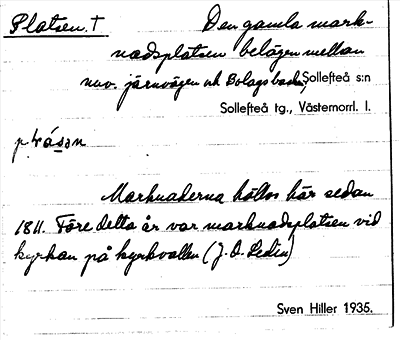 Platsen. † Den gamla mark-
nadsplatsen belägen mellan
nuv. järnvägen och Bolagsbacken, Sollefteå s:n
Sollefteå tg., Västernorrl. l.
Marknaderna hållos här sedan
1811. Före detta år var marknadsplatsen vid
kyrkan på kyrkvallen (J. O. Ledin)
Sven Hiller 1935.